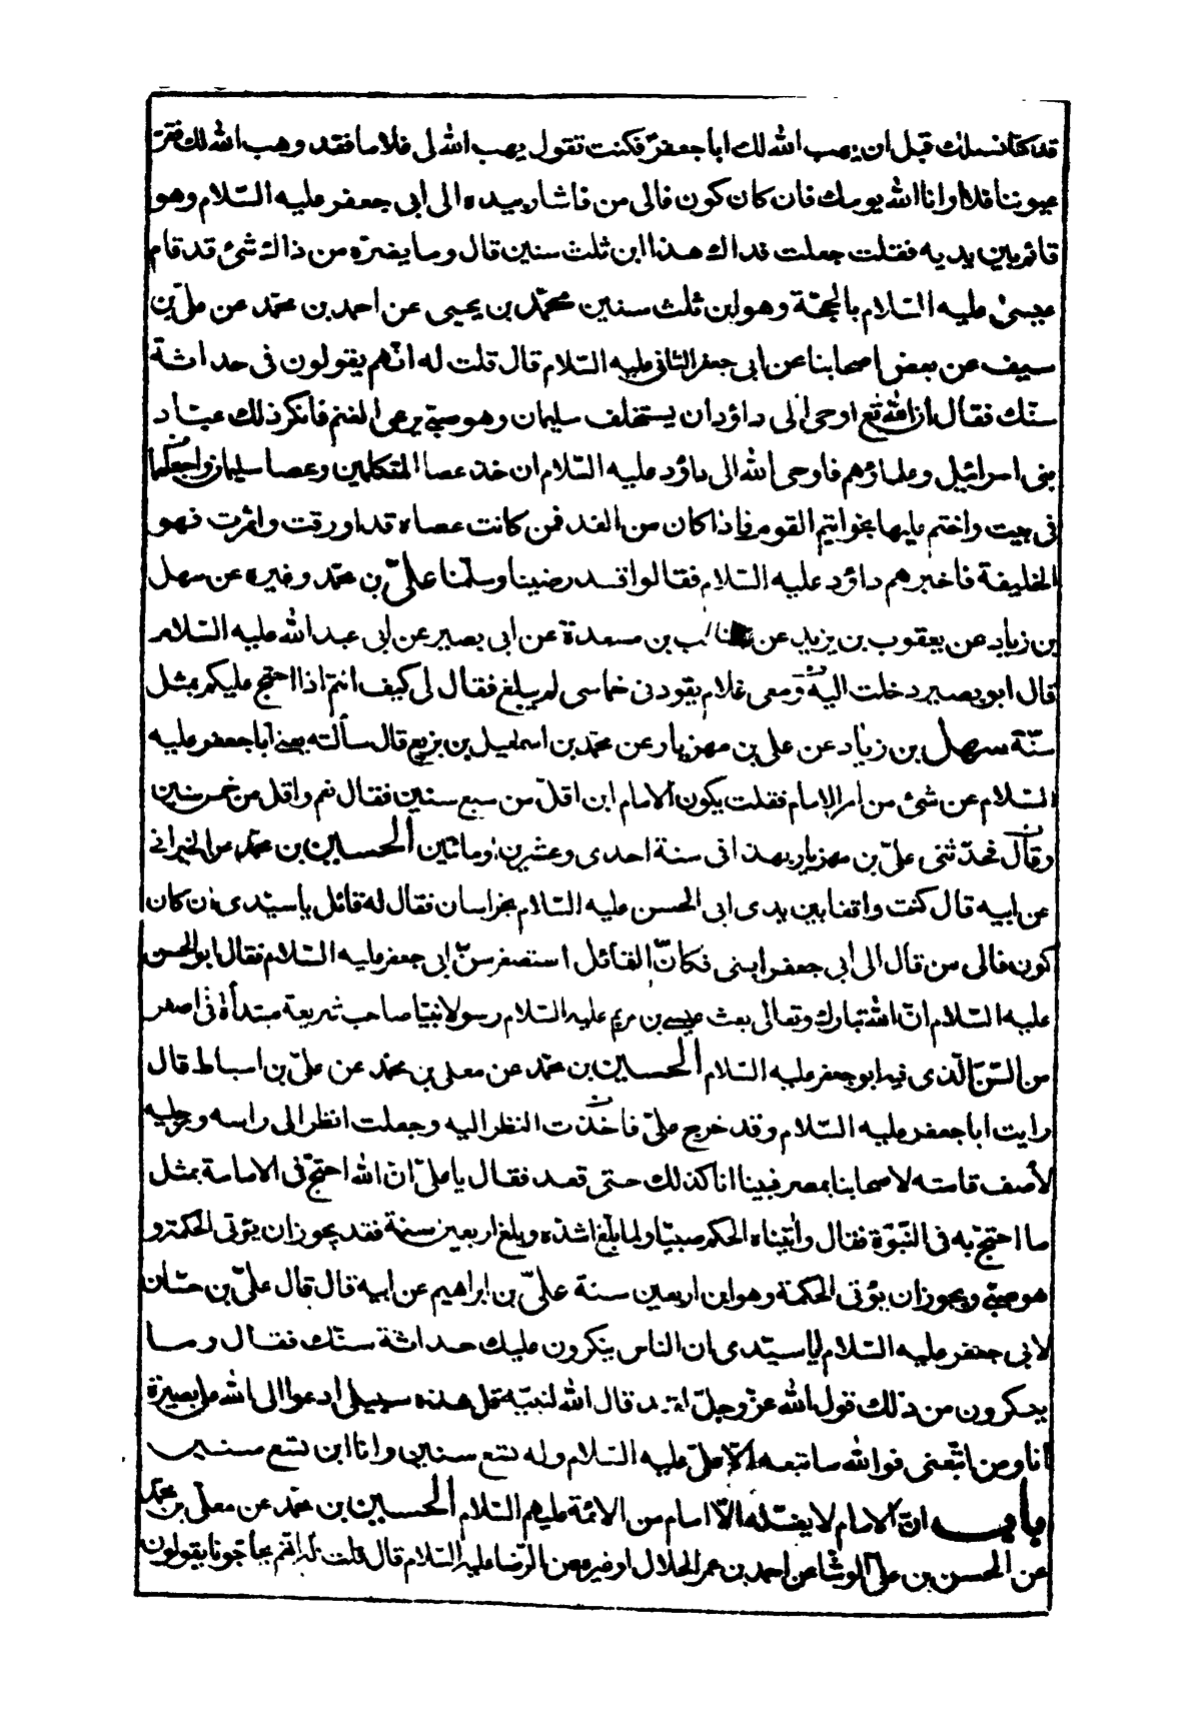 قد كنا نسئلك قبل ان يهب الله لك ابا جعفر فكنت تقول يهب الله لى غلاما فقد وهب الله لك فقر
عيوننا فلا ارانا الله يومك فان كان كون فالى من فاشار بيده الى ابى جعفر عليه السّلام وهو
قائم بين يديه فقلت جعلت فداك هذا ابن ثلث سنين قال وما يضرّه من ذلك شئ قد قام
عيسىٰ عليه السّلام بالحجّة وهو ابن ثلث سنين محمّد بن يحيى عن احمد بن محمّد عن علىّ بن
سيف عن بعض اصحابنا عن ابى جعفر الثانى عليه السّلام قال قلت له انّهم يقولون فى حداثة
سنّك فقال ان الله تع اوحى الى داؤد ان يستخلف سليمان وهو صبىّ يرعى الغنم فانكر ذلك عبّاد
بنى اسرائيل وعلماؤهم فاوحى الله الى داؤد عليه السّلام ان خذ عصا المتكلمين وعصا سليمان واجعلها
فى بيت واختم عليها بخواتيم القوم فاذا كان من الغد فمن كانت عصاه قد اورقت واثمرت فهو
الخليفة فاخبرهم داؤد عليه السّلام فقالوا قد رضينا وسلّمنا علىّ بن محمّد وغيره عن سهل
بن زياد عن يعقوب بن يزيد عن بن مسعدة عن ابى بصير عن ابى عبد الله عليه السّلام
قال ابو بصير دخلت اليه ومعى غلام يقودنى خماسى لم يبلغ فقال لى كيف انتم اذا احتج عليكم بمثل
سنّة سهل بن زياد عن على بن مهزيار عن محمّد بن اسمعيل بن بزيع قال سألته يعنى ابا جعفر عليه
السّلام عن شئ من امر الامام فقلت يكون الامام ابن اقلّ من سبع سنين فقال نعم واقل من خمس سنين
وقال فحدّثنى علىّ بن مهزيار بهذا فى سنة احدى وعشرين وماتين الحسين بن محمّد عن الخيرانى
عن ابيه قال كنت واقفا بين يدى ابى الحسن عليه السّلام بخراسان فقال له قائل يا سيّدى ان كان
كون فالى من قال الى ابى جعفر ابنى فكانّ القائل استصغر سنّ ابى جعفر عليه السّلام فقال ابو الحسن
عليه السّلام انّ الله تبارك وتعالى بعث عيسى بن مريم عليه السّلام رسولا نبيّا صاحب شريعة مبتدأة فى اصغر
من السّنّ الّذى فيه ابو جعفر عليه السّلام الحسين بن محمّد عن معلى بن محمّد عن علىّ بن اسباط قال
رايت ابا جعفر عليه السّلام وقد خرج علىّ فاخذت النظر اليه وجعلت انظر الى راسه ورجليه
لأصف قامته لاصحابنا بمصر فبينا انا كذلك حتى قعد فقال يا علىّ انّ الله احتجّ فى الامامة بمثل
ما احتجّ به فى النّبوّة فقال واٰتيناه الحكم صبيّا ولما بلغ اشدّه وبلغ اربعين سنة فقد يجوز ان يؤتى الحكمة و
هو صبىّ ويجوز ان يؤتى الحكمة وهو ابن اربعين سنة علىّ بن ابراهيم عن ابيه قال قال علىّ بن حسّان
لابى جعفر عليه السّلام يا سيّدى ان الناس ينكرون عليك حداثة سنّك فقال وما
ينكرون من ذلك قول الله عزّ وجلّ لقد قال الله لنبيّه قل هذه سبيلى ادعوا الى الله على بصيرة
انا ومن اتّبعنى فوالله ما تبعه الّا علىّ عليه السّلام وله تسع سنين وانا ابن تسع سنين
باب انّ الامام لا يغسّله الّا امام من الائمة عليهم السّلام الحسين بن محمّد عن معلى بن محمّد
عن الحسن بن علىّ الوشّا عن احمد بن عمر الحلال او غيره عن الرّضا عليه السّلام قال قلت له انّهم يحاجّونا يقولون